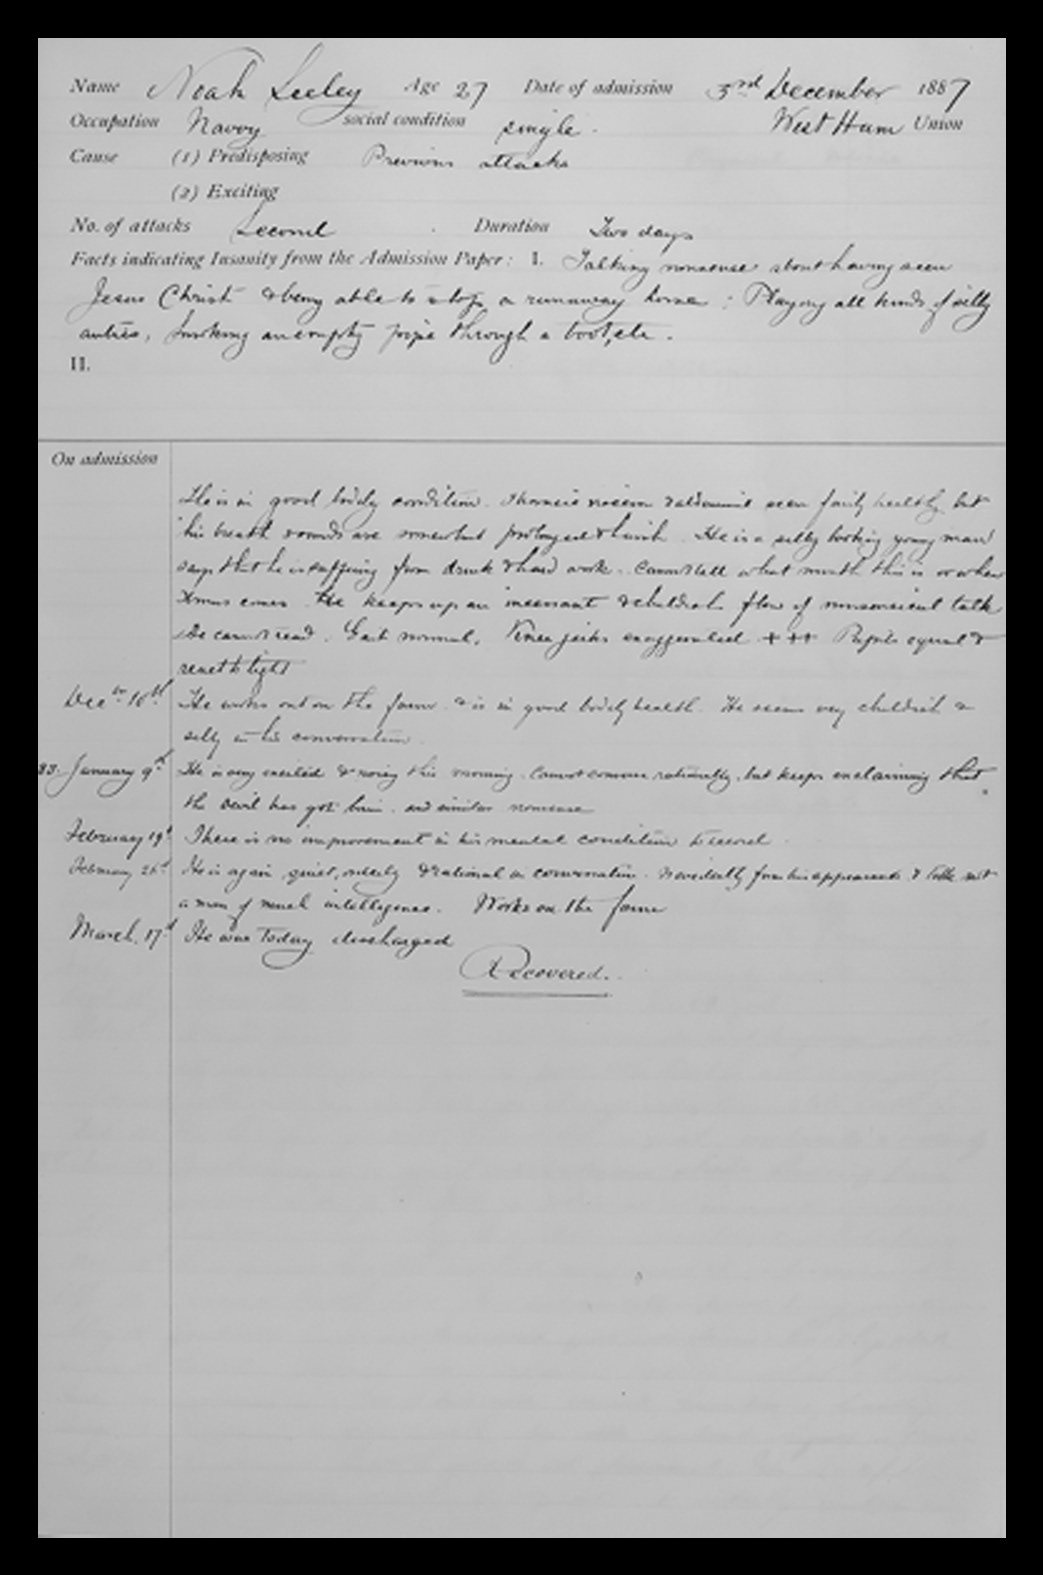 Name Noah Seeley Age 27 Date of admission 3rd December 1887
Occupation Navvy social condition single. West Ham Union
Cause (1) Predisposing Previous attacks
(2) Exciting
No. of attacks Second. Duration Two days
Facts indicating Insanity from the Admission Paper: I. Talking nonsense about having seen
Jesus Christ & being able to stop a runaway horse : Playing all kinds of silly
antics, smoking an empty pipe through a boot, etc.
II.
On admission
He is in good bodily condition. Thoracic viscera & abdominal seem fairly healthy, but
his breath sounds are somewhat prolonged & harsh. He is a silly looking young man
says that he is suffering from drink & hard work. Cannot tell what month this is or when
Xmas comes. He keeps up an incessant & childish flow of nonsensical talk
He cannot read. Gait normal. Knee jerks exaggerated +++ Pupils equal &
react to light
Decr 10th He works out on the farm & is in good bodily health. He seems very childish &
silly in his conversation.
88. January 9th He is very excited & noisy this morning. Cannot converse rationally, but keeps exclaiming that
the Devil has got him and similar nonsense
February 19th There is no improvement in his mental condition to record.
February He is again quiet, orderly & rational in conversation. evidently from his appearance & talk not
a man of much intelligence. Works on the farm
March 17th He was today discharged
Recovered.